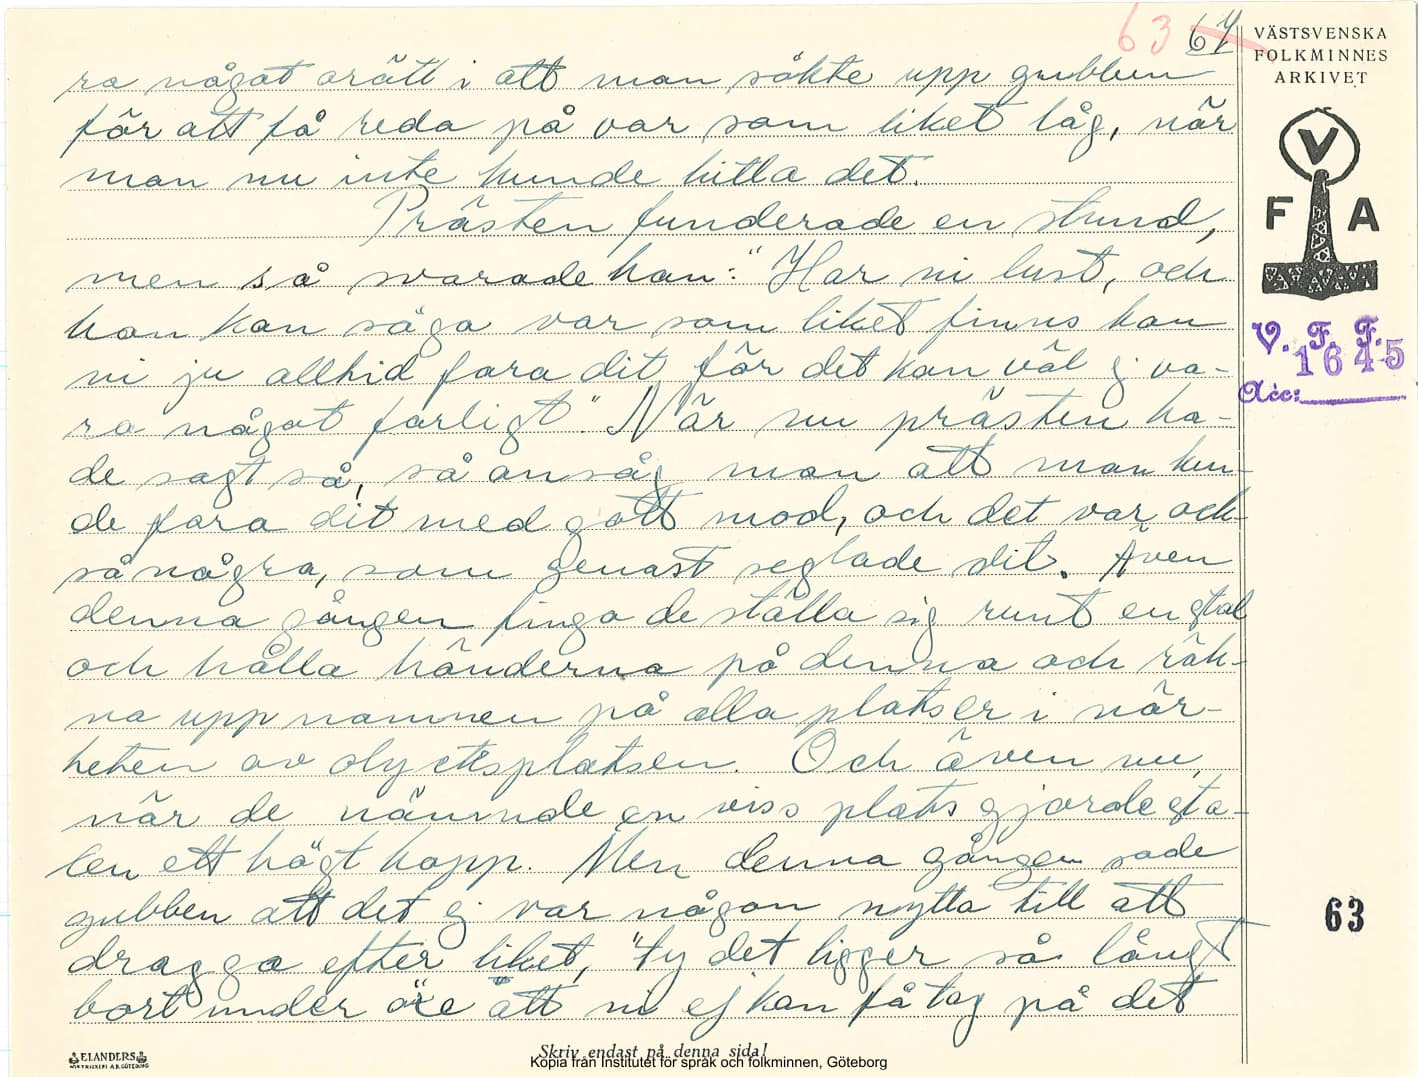 63 64
VÄSTSVENSKA
FOLKMINNES
ARKIVET
V
F A
V. F. F.
1645
Acc:
ra något orätt i att man sökte upp gubben
för att få reda på var som liket låg, när
man nu inte kunde hitta det.
Prästen funderade en stund,
men så svarade han: "Har ni lust, och
han kan säga var som liket finns kan
ni ju alltid fara dit för det kan väl ej va-
ra något farligt". När nu prästen ha-
de sagt så, så ansåg man att man kun-
de fara dit med gott mod, och det var ock-
så några, som genast seglade dit. Även
denna gången fingo de ställa sig runt en stol
och hålla händerna på denna och räk-
na upp namnen på alla platser i när-
heten av olycksplatsen. Och även nu,
när de nämnde en viss plats gjorde sto-
len ett högt hopp. Men denna gången sade
gubben att det ej var någon nytta till att
dragga efter liket, "ty det ligger så långt
bort under att ni ej kan få tag på det
63
ELANDERS
BOKTRYCKERI A.B. GÖTEBORG
Skriv endast på denna sida!
Kopia från Institutet för språk och folkminnen, Göteborg